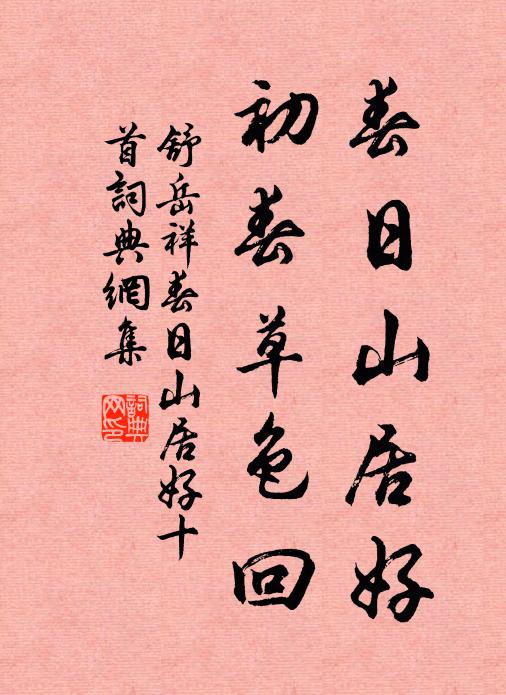 春日山居好
初春草色回
舒岳祥春日山居好十
首詞典網集
詞典
网印